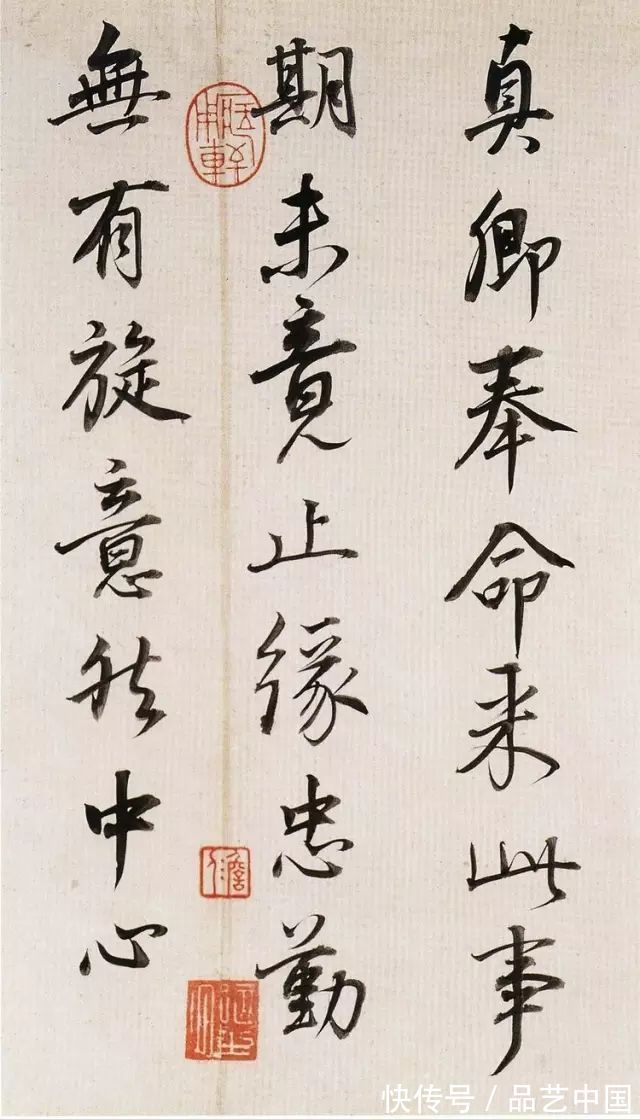 真卿奉命来此事
期未竟止緣忠勤
無有旋意然中心
快传号/品艺中国